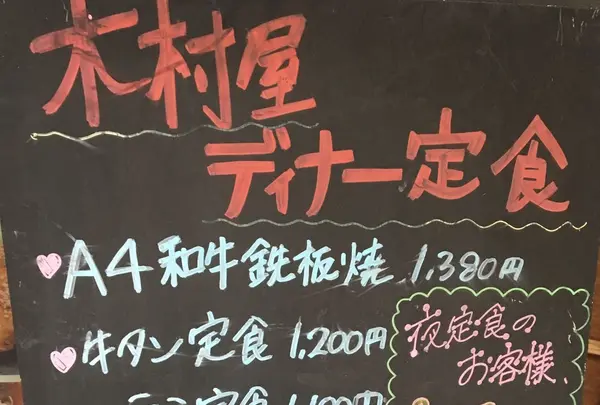 木村屋
ディナー定食
A4和牛鉄板焼 1,380円
牛タン定食 1,200円
夜定食の
お客様
定食